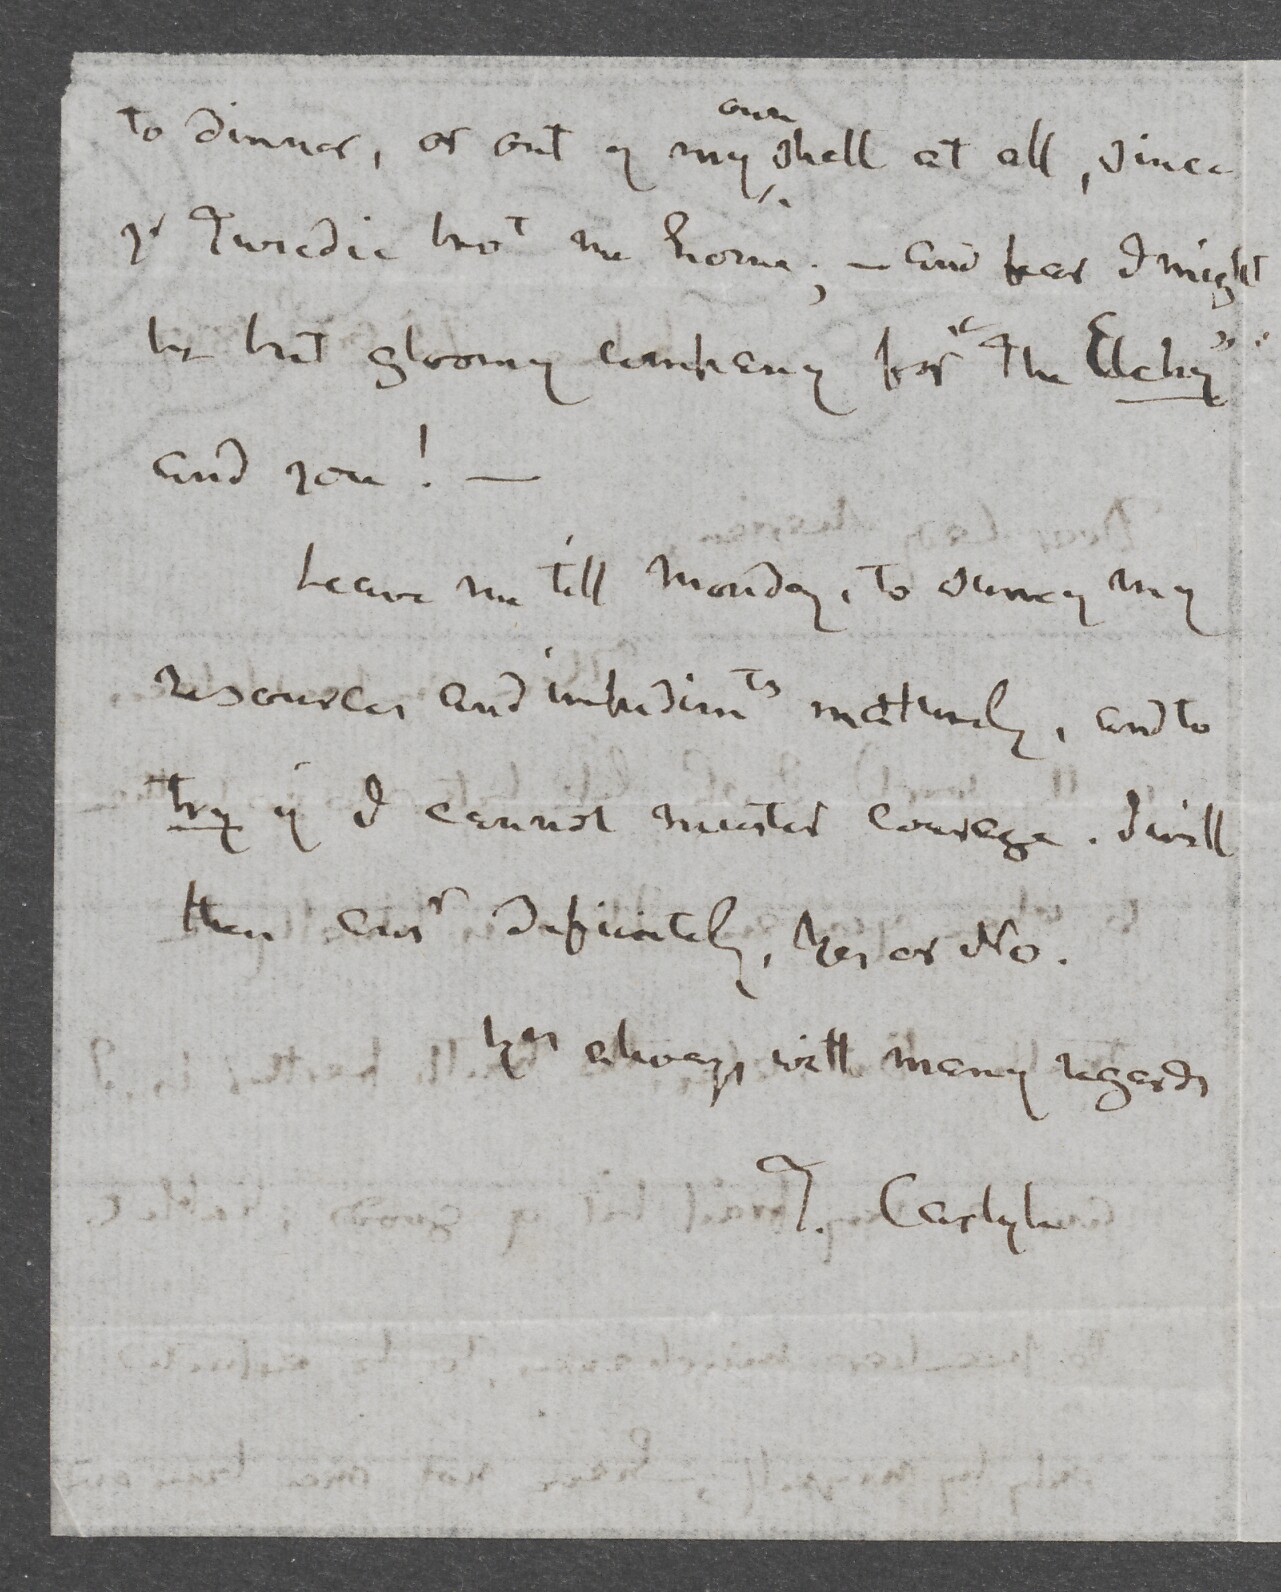 to dinner, or out of my own shell at all, since
yr Tweedie brot me home; — and fear I might
be but gloomy company for "The Elchy"
and you! —
Leave me till Monday, to survey my
resources and impedimts maturely, and to
try if I cannot muster courage. I will
then ansr definitely, Yes or No.
Yrs always, with many regards
T. Carlyle